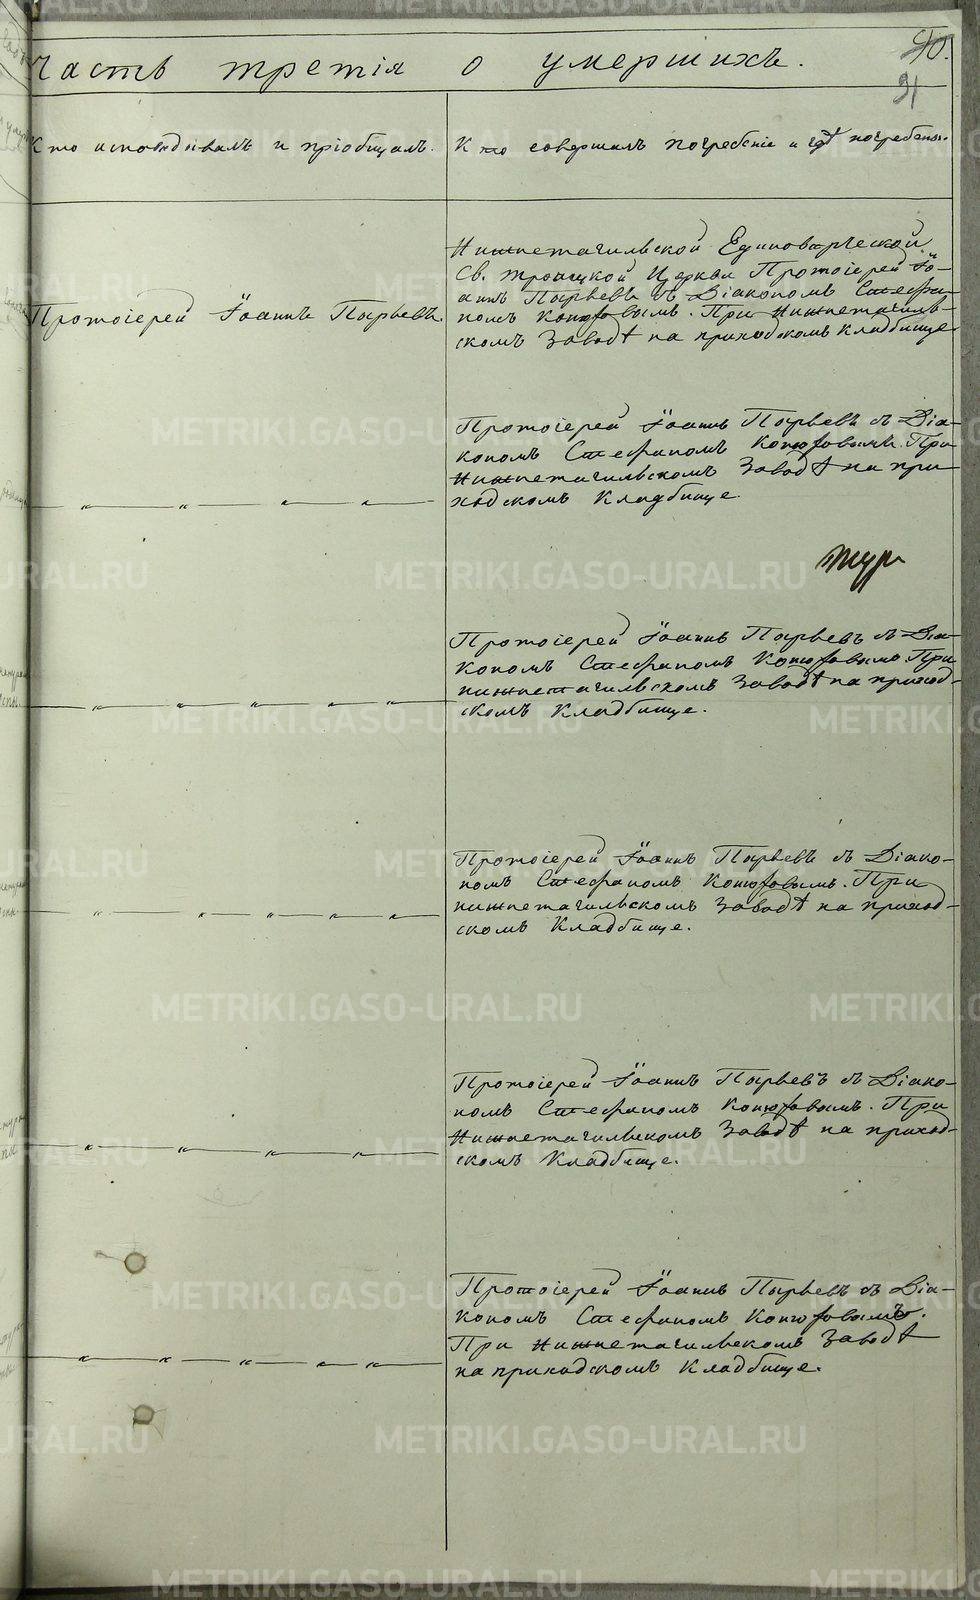 Часть третія о умершихъ.
40.
91
Кто исповѣдывалъ и пріобщалъ.
Кто совершалъ погребеніе и гдѣ погребены.
Протоіерей Іоаннъ Пырьевъ.
Нижнетагильской Единоверческой
Св. Троицкой Церкви Протоіерей Іо-
аннъ Пырьевъ съ Діакономъ Стефа-
номъ Конюховымъ. При Нижнетагиль-
скомъ Заводѣ на приходскомъ Кладбище
Протоіерей Іоаннъ Пырьевъ съ Діа-
кономъ Стефаномъ Конюховымъ. При
Нижнетагильскомъ Заводѣ на при
ходскомъ Кладбище.
— „ — „ — „ — „ —
Протоіерей Іоаннъ Пырьевъ съ Діа-
кономъ Стефаномъ Конюховымъ При
нижнетагильскомъ Заводѣ на приход-
скомъ Кладбище.
— „ — „ — „ — „ — „ —
Протоіерей Іоаннъ Пырьевъ съ Діако-
номъ Стефаномъ Конюховымъ. При
нижнетагильскомъ Заводѣ на приход-
скомъ Кладбище.
— „ — „ — „ — „ — „ —
Протоіерей Іоаннъ Пырьевъ съ Діако-
номъ Стефаномъ Конюховымъ. При
Нижнетагильскомъ Заводѣ на приход-
скомъ Кладбище.
— „ — „ — „ — „ —
Протоіерей Іоаннъ Пырьевъ съ Діа-
кономъ Стефаномъ Конюховымъ.
При Нижнетагильскомъ Заводѣ
на приходскомъ Кладбище.
— „ — „ — „ — „ — „ —
METRIKI.GASO-URAL.RU